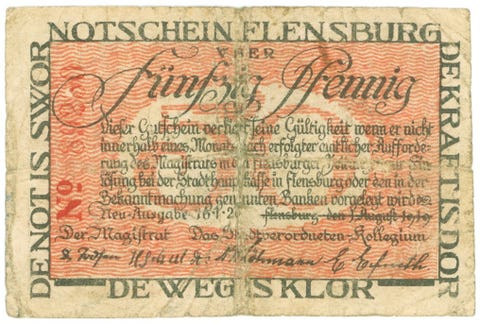 NOTSCHEIN FLENSBURG
UEBER
Fünfzig Pfennig
Dieser Gutschein verliert seine Gültigkeit wenn er nicht
innerhalb eines Monats nach erfolgter amtlicher Aufforde-
rung des Magistrats in den Flensburger
lösung bei der Stadthauptkasse in Flensburg oder den in der
Bekanntmachung genannten Banken vorgelegt wird.
Neu-Ausgabe 16.1.2 Flensburg, den 1. August 1919
Der Magistrat Das Stadtverordneten-Kollegium
DE NOT IS SWOR
No
DE KRAFT IS DOR
DE WEG IS KLOR